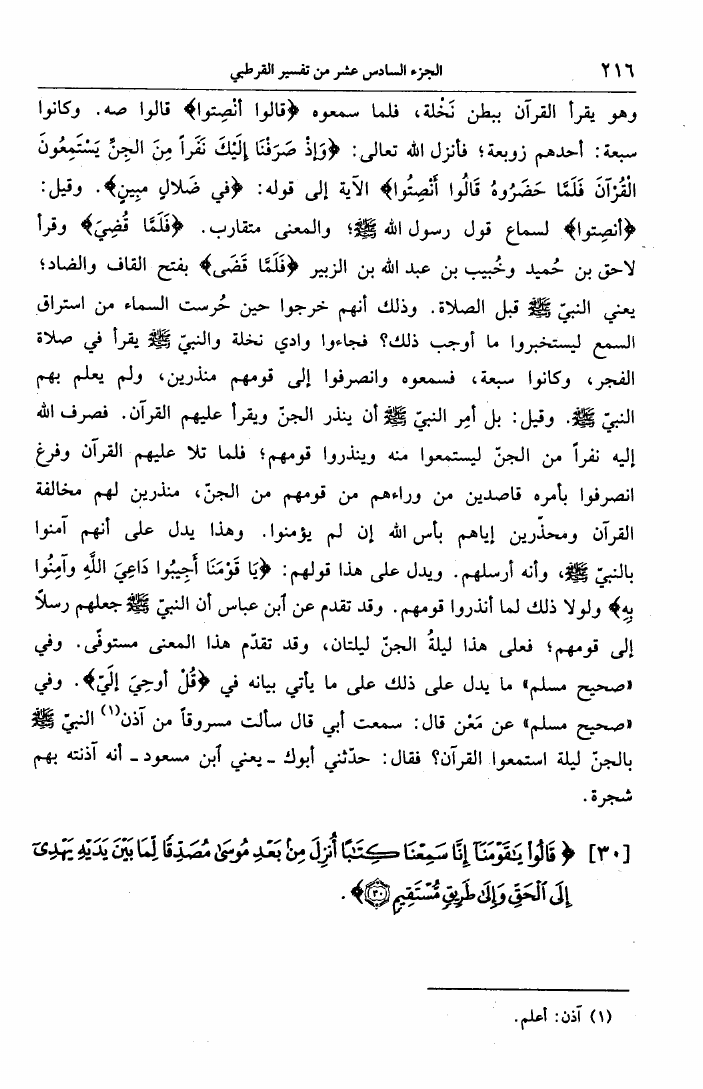 ٢١٦ الجزء السادس عشر من تفسير القرطبي
وهو يقرأ القرآن ببطن نَخْلة، فلما سمعوه ﴿قالوا أنْصِتوا﴾ قالوا صه. وكانوا
سبعة: أحدهم زوبعة؛ فأنزل الله تعالى: ﴿وَإِذْ صَرَفْنَا إِلَيْكَ نَفَراً مِنَ الجِنِّ يَسْتَمِعُونَ
الْقُرْآنَ فَلَمَّا حَضَرُوهُ قَالُوا أَنْصِتُوا﴾ الآية إلى قوله: ﴿في ضَلالٍ مبِينٍ﴾. وقيل:
﴿أنصِتوا﴾ لسماع قول رسول الله ﷺ؛ والمعنى متقارب. ﴿فَلَمَّا قُضِيَ﴾ وقرأ
لاحق بن حُميد وخُبيب بن عبد الله بن الزبير ﴿فَلَمَّا قَضَى﴾ بفتح القاف والضاد؛
يعني النبيّ ﷺ قبل الصلاة. وذلك أنهم خرجوا حين حُرست السماء من استراق
السمع ليستخبروا ما أوجب ذلك؟ فجاءوا وادي نخلة والنبيّ ﷺ يقرأ في صلاة
الفجر، وكانوا سبعة، فسمعوه وانصرفوا إلى قومهم منذرين، ولم يعلم بهم
النبيّ ﷺ. وقيل: بل أمِر النبيّ ﷺ أن ينذر الجنّ ويقرأ عليهم القرآن. فصرف الله
إليه نفراً من الجنّ ليستمعوا منه وينذروا قومهم؛ فلما تلا عليهم القرآن وفرغ
انصرفوا بأمره قاصدين من وراءهم من قومهم من الجنّ، منذرين لهم مخالفة
القرآن ومحذّرين إياهم بأس الله إن لم يؤمنوا. وهذا يدل على أنهم آمنوا
بالنبيّ ﷺ، وأنه أرسلهم. ويدل على هذا قولهم: ﴿يَا قَوْمَنَا أَجِيبُوا دَاعِيَ اللَّهِ وآمِنُوا
بِهِ﴾ ولولا ذلك لما أنذروا قومهم. وقد تقدم عن ٱبن عباس أن النبيّ ﷺ جعلهم رسلاً
إلى قومهم؛ فعلى هذا ليلةُ الجنّ ليلتان، وقد تقدّم هذا المعنى مستوفًى. وفي
«صحيح مسلم» ما يدل على ذلك على ما يأتي بيانه في ﴿قُلْ أوحِيَ إلَيّ﴾. وفي
«صحيح مسلم» عن مَعْن قال: سمعت أبي قال سألت مسروقاً من آذن(١) النبيّ ﷺ
بالجنّ ليلة استمعوا القرآن؟ فقال: حدّثني أبوك ـ يعني ٱبن مسعود ـ أنه آذنته بهم
شجرة.
[٣٠] ﴿قَالُوا۟ يَٰقَوْمَنَآ إِنَّا سَمِعْنَا كِتَٰبًا أُنزِلَ مِنۢ بَعْدِ مُوسَىٰ مُصَدِّقًا لِّمَا بَيْنَ يَدَيْهِ يَهْدِىٓ
إِلَى ٱلْحَقِّ وَإِلَىٰ طَرِيقٍ مُّسْتَقِيمٍ ۝٣٠﴾.
(١) آذن: أعلم.